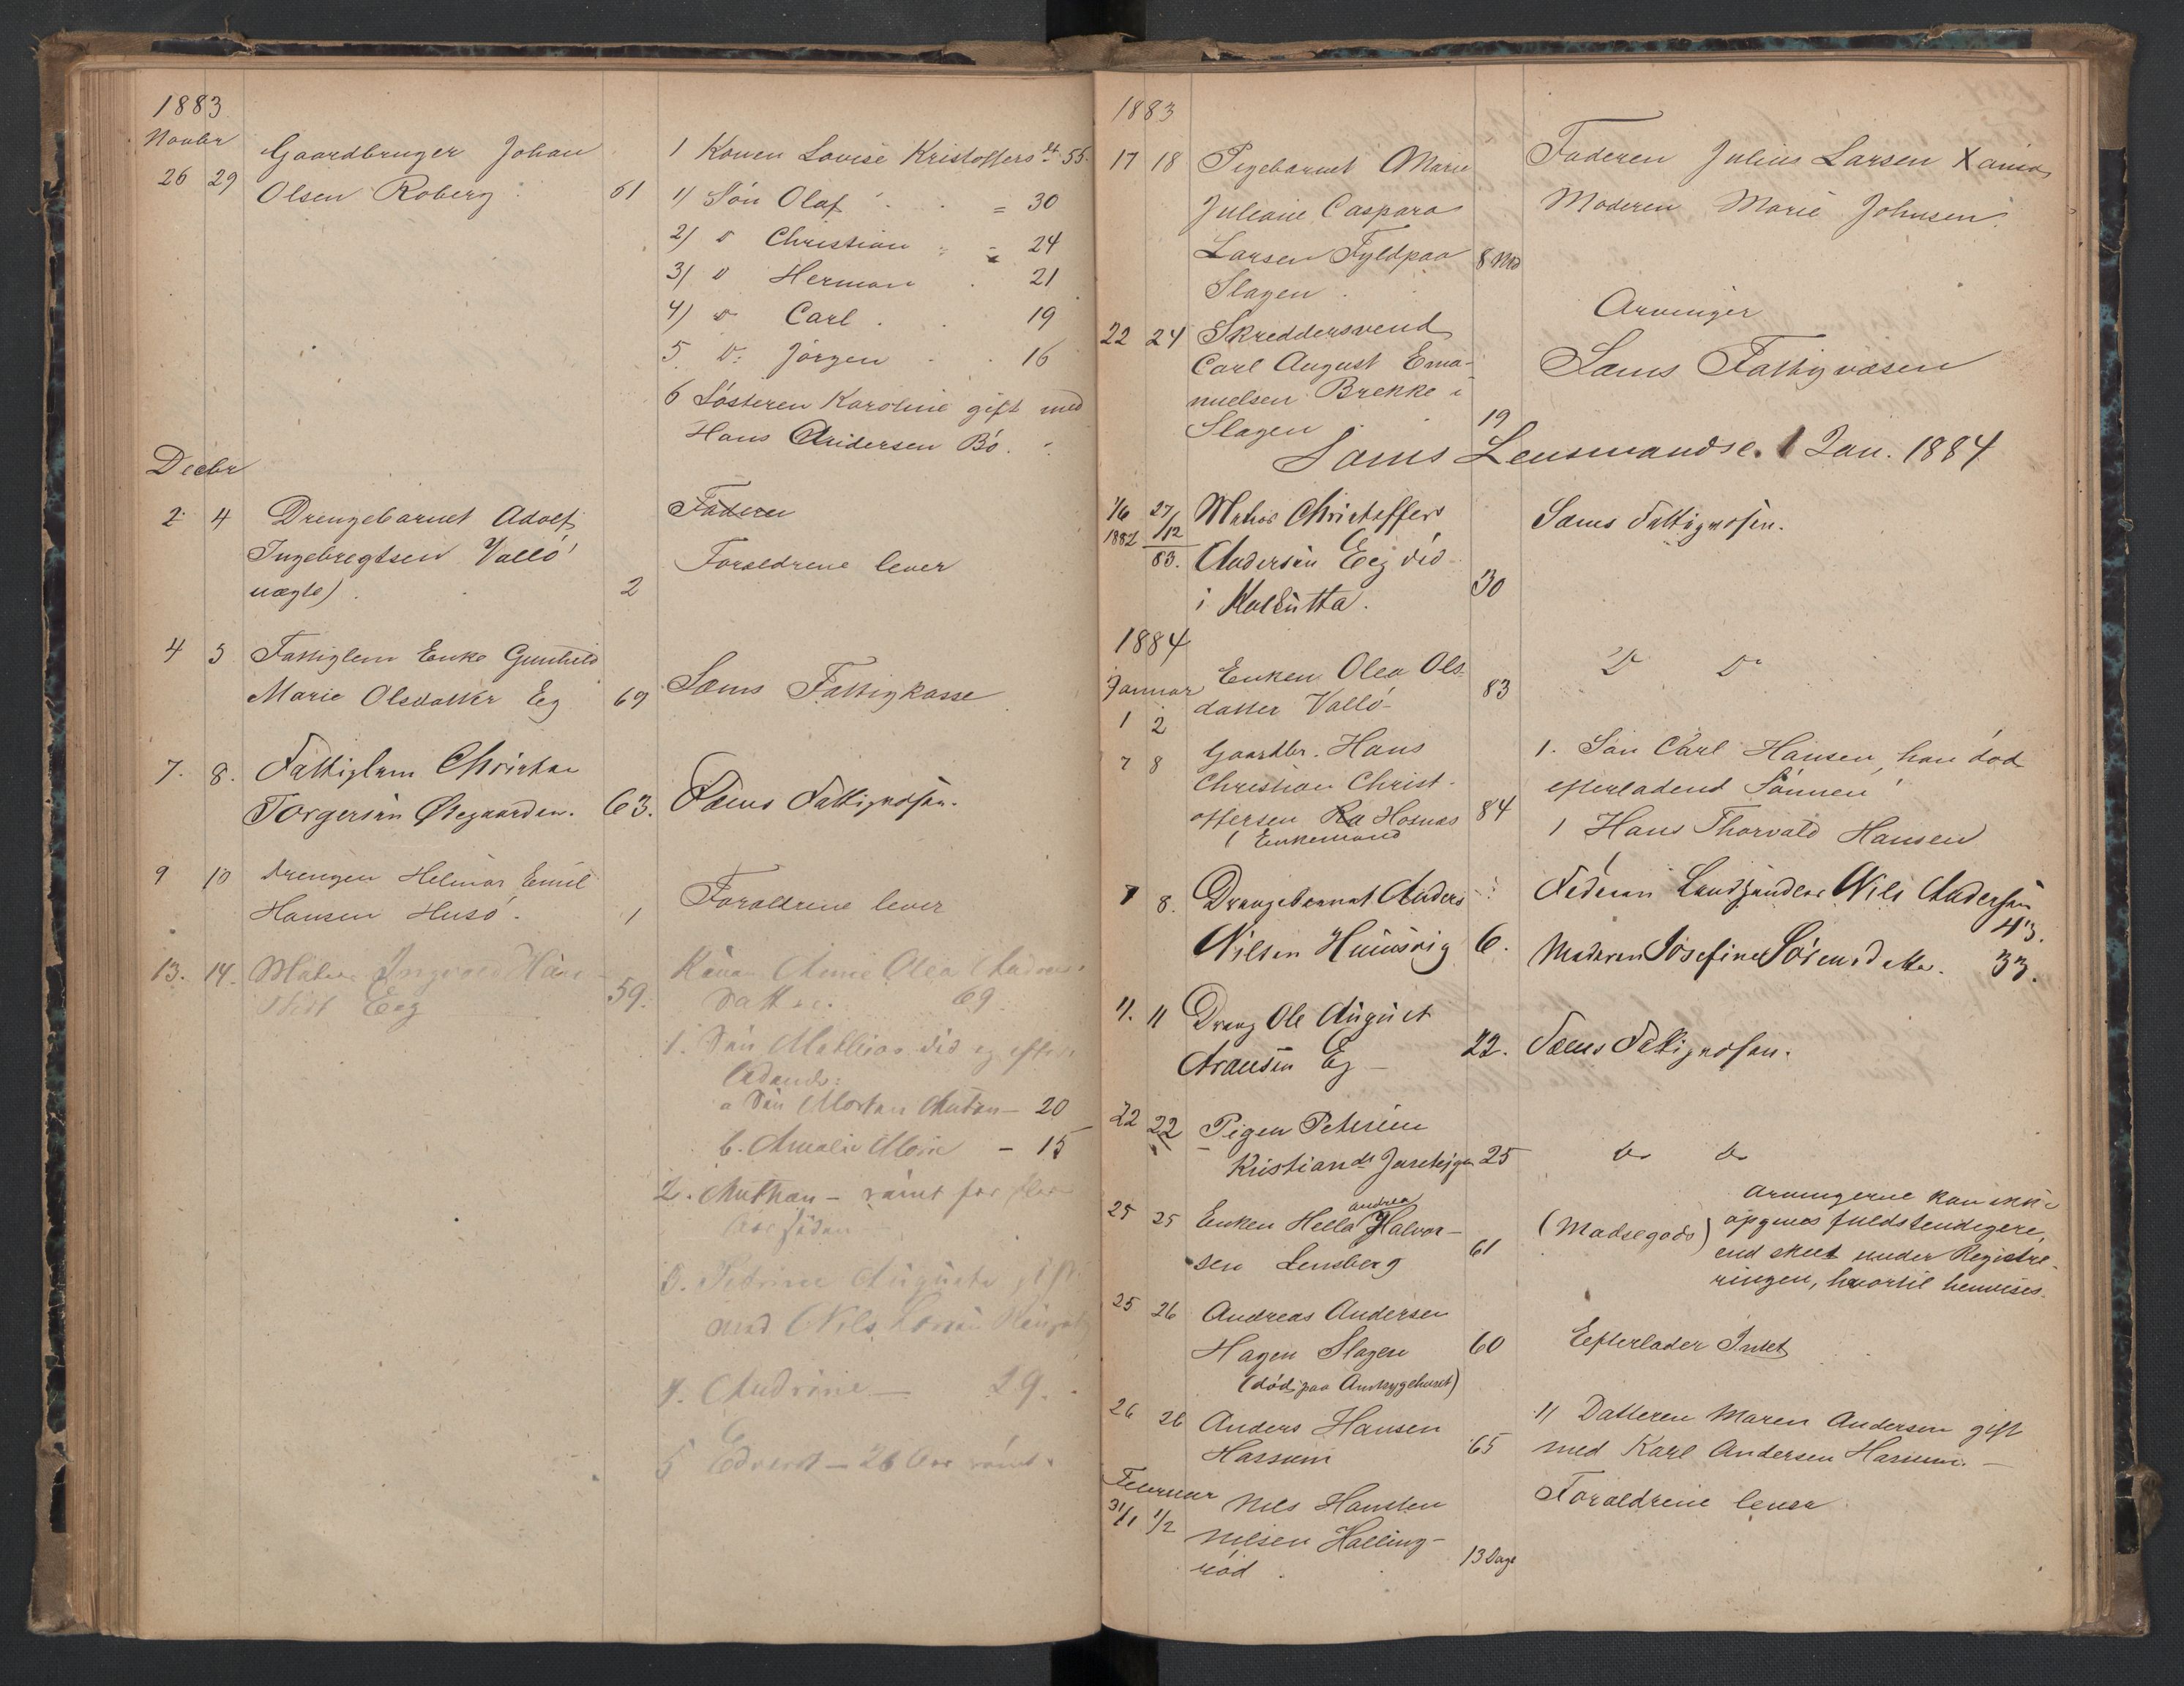 1883
Novbr
26 29 Gaardbruger Johan
Olsen Roberg 61
1 Konen Lovise Kristoffersdt 55
1) Søn Olaf = 30
2) D Christian = 24
3) D Herman 21
4) D Carl 19
5 D: Jørgen 16
6 Søsteren Karoline gift med
Hans Andersen Bø.
Decbr
2 4 Drengebarnet Adolf
Ingebregtsen Vallø
uægte) 2
Faderen
Foraeldrene lever
4 5 Fattiglem Enke Gunhild
Marie Olsdatter Eeg 69 Sems Fattigkasse
7. 8. Fattiglem Christian
Torgersen Øregaarden. 63. Sems Fattigvæsen.
9 10 Drengen Helmar Emil
Hansen Husø. 1 Foraeldrene lever
13. 14. Matros
Eeg 59.
Konen Anne Olea Anders-
datter. 69
1. Søn Mathias død og efter-
ladende:
a Søn Morten Anton — 20
b. Amalie Marie — 15
2. Anthon — rømt for flere
Aar siden
3. Petrine Augusta gift
med Nils
4. Andrine — 29.
5 Edvard — 26 Aar rømt.
1883
17 18 Pigebarnet Marie
Juliane Caspara
Larsen Fyldpaa 8 Md
Slagen
Faderen Julius Larsen Xania
Moderen Marie Johnsen.
22 24 Skreddersvend
Carl August Ema-
nuelsen Brekke i
Slagen 19
Arvinger
Sems Fattigvæsen
Sems Lensmandse. 1 Jan. 1884
1/6 1882 27/12 83. Matros Christoffer
Andersen Eeg død
i Kalkutta. 30
Sems Fattigvæsen.
1884
Januar
1 2 Enken Olea Ols-
datter Vallø 83 D D
7 8 Gaardbr. Hans
Christian Christ-
offersen Ra Hosnæs 84
(Enkemand
1. Søn Carl Hansen, han død
efterladend Sønnen
1 Hans Thorvald Hansen
7 8. Drengebarnet Anders
Nilsen Hunsrig 6.
Faderen Landhandler Nils Andersen
43.
Moderen Josefine Sørensdatter. 33.
11. 11 Dreng Ole August
Aransen Eg — 22. Sems Fattigvæsen.
22 22 Pigen Petrine
Kristiansdt Jareteigen 25 do do
25 25 Enken Hella andrea Halvor-
sen Lensberg 61
(Madsegods) Arvingerne kan ikke
opgives fuldstendigere,
end skeet under Registre-
ringen, hvortil henvises.
25 26 Andreas Andersen
Hagen Slagen 60 Eefterlader Intet
(død paa Amtsygehuset)
26 26 Anders Hansen
Hassum 65
1) Datteren Maren Andersen gift
med Karl Andersen Hassum.
Februar
31/1 1/2 Nils Hansten
Nilsen Halling-
rød 13 Dage
Foraeldrene lever